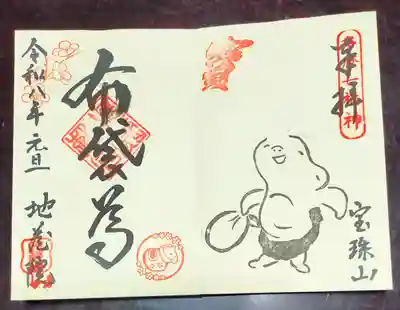 奉拝
宝珠山
布袋尊
令和八年 元旦
地蔵院